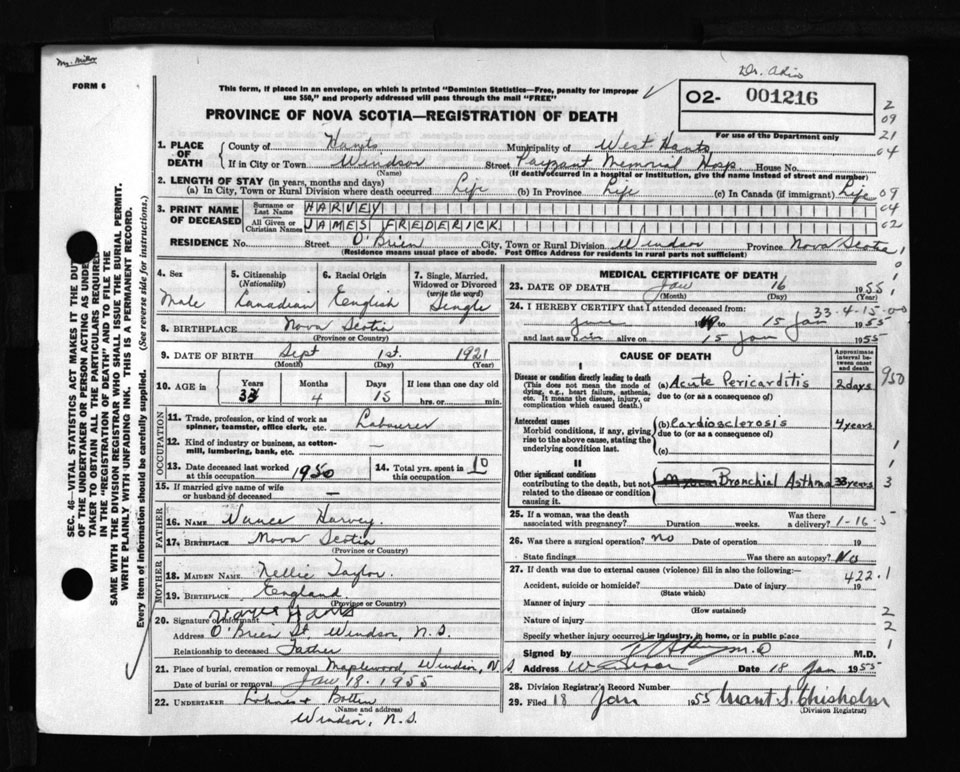 Dr. Akin
FORM 6
This form, if placed in an envelope, on which is printed "Dominion Statistics—Free, penalty for improper
use $50," and properly addressed will pass through the mail "FREE"
PROVINCE OF NOVA SCOTIA—REGISTRATION OF DEATH
02- 001216
For use of the Department only
2
09
21
04
09
04
02
1. PLACE OF DEATH
County of Hants Municipality of West Hants
If in City or Town Windsor Street Payzant Memorial Hosp House No.
(Name) (If death occurred in a hospital or institution, give the name instead of street and number)
2. LENGTH OF STAY (in years, months and days)
(a) In City, Town or Rural Division where death occurred Life (b) In Province Life (c) In Canada (if immigrant) Life
3. PRINT NAME OF DECEASED
Surname or Last Name HARVEY
All Given or Christian Names JAMES FREDERICK
RESIDENCE No. Street O'Brien City, Town or Rural Division Windsor Province Nova Scotia
(Residence means usual place of abode. Post Office Address for residents in rural parts not sufficient)
4. Sex Male
5. Citizenship (Nationality) Canadian
6. Racial Origin English
7. Single, Married, Widowed or Divorced (write the word) Single
8. BIRTHPLACE Nova Scotia
(Province or Country)
9. DATE OF BIRTH Sept 1st. 1921
(Month) (Day) (Year)
10. AGE in Years 33 Months 4 Days 15 If less than one day old
hrs. or min.
OCCUPATION
11. Trade, profession, or kind of work as
spinner, teamster, office clerk, etc. Labourer
12. Kind of industry or business, as cotton-
mill, lumbering, bank, etc.
13. Date deceased last worked
at this occupation 1950
14. Total yrs. spent in
this occupation 10
15. If married give name of wife
or husband of deceased —
FATHER
16. NAME Harvey
17. BIRTHPLACE Nova Scotia
(Province or Country)
MOTHER
18. MAIDEN NAME Nellie Taylor
19. BIRTHPLACE England
(Province or Country)
20. Signature of informant
Address O'Brien St. Windsor, N.S.
Relationship to deceased Father
21. Place of burial, cremation or removal Maplewood Windsor, N.S.
Date of burial or removal Jan 18. 1955
22. UNDERTAKER
(Name and Address)
Windsor, N.S.
MEDICAL CERTIFICATE OF DEATH
23. DATE OF DEATH Jan 16 1955
(Month) (Day) (Year)
33-4-15-00
24. I HEREBY CERTIFY that I attended deceased from:
June 19 to 15 Jan 1955
and last saw him alive on 15 Jan 1955
CAUSE OF DEATH
Approximate interval between onset and death
I
Disease or condition directly leading to death
(This does not mean the mode of
dying, e.g., heart failure, asthenia,
etc. It means the disease, injury, or
complication which caused death.)
(a) Acute Pericarditis 2 days
due to (or as a consequence of)
950
Antecedent causes
Morbid conditions, if any, giving
rise to the above cause, stating the
underlying condition last.
(b) Cardiosclerosis 4 years
due to (or as a consequence of)
(c)
II
Other significant conditions
contributing to the death, but not
related to the disease or condition
causing it.
Bronchial Asthma 33 years
25. If a woman, was the death
associated with pregnancy? Duration weeks. Was there
a delivery?
1-16-5
26. Was there a surgical operation? No Date of operation 19
State findings Was there an autopsy? No
27. If death was due to external causes (violence) fill in also the following:—
422.1
Accident, suicide or homicide? Date of injury 19
(State which)
Manner of injury
(How sustained)
Nature of injury
Specify whether injury occurred in industry, in home, or in public place
Signed by M.D. M.D.
Address Windsor Date 18 Jan 1955
28. Division Registrar's Record Number
29. Filed 18 Jan 1955 Grant S. Chisholm
(Division Registrar)
SEC. 46—VITAL STATISTICS ACT MAKES IT THE DUTY
OF THE UNDERTAKER OR PERSON ACTING AS UNDER
TAKER TO OBTAIN ALL THE PARTICULARS REQUIRED
IN THE "REGISTRATION OF DEATH" AND TO FILE THE
SAME WITH THE DIVISION REGISTRAR WHO SHALL ISSUE THE BURIAL PERMIT.
WRITE PLAINLY WITH UNFADING INK. THIS IS A PERMANENT RECORD.
Every item of information should be carefully supplied. (See reverse side for instructions.)